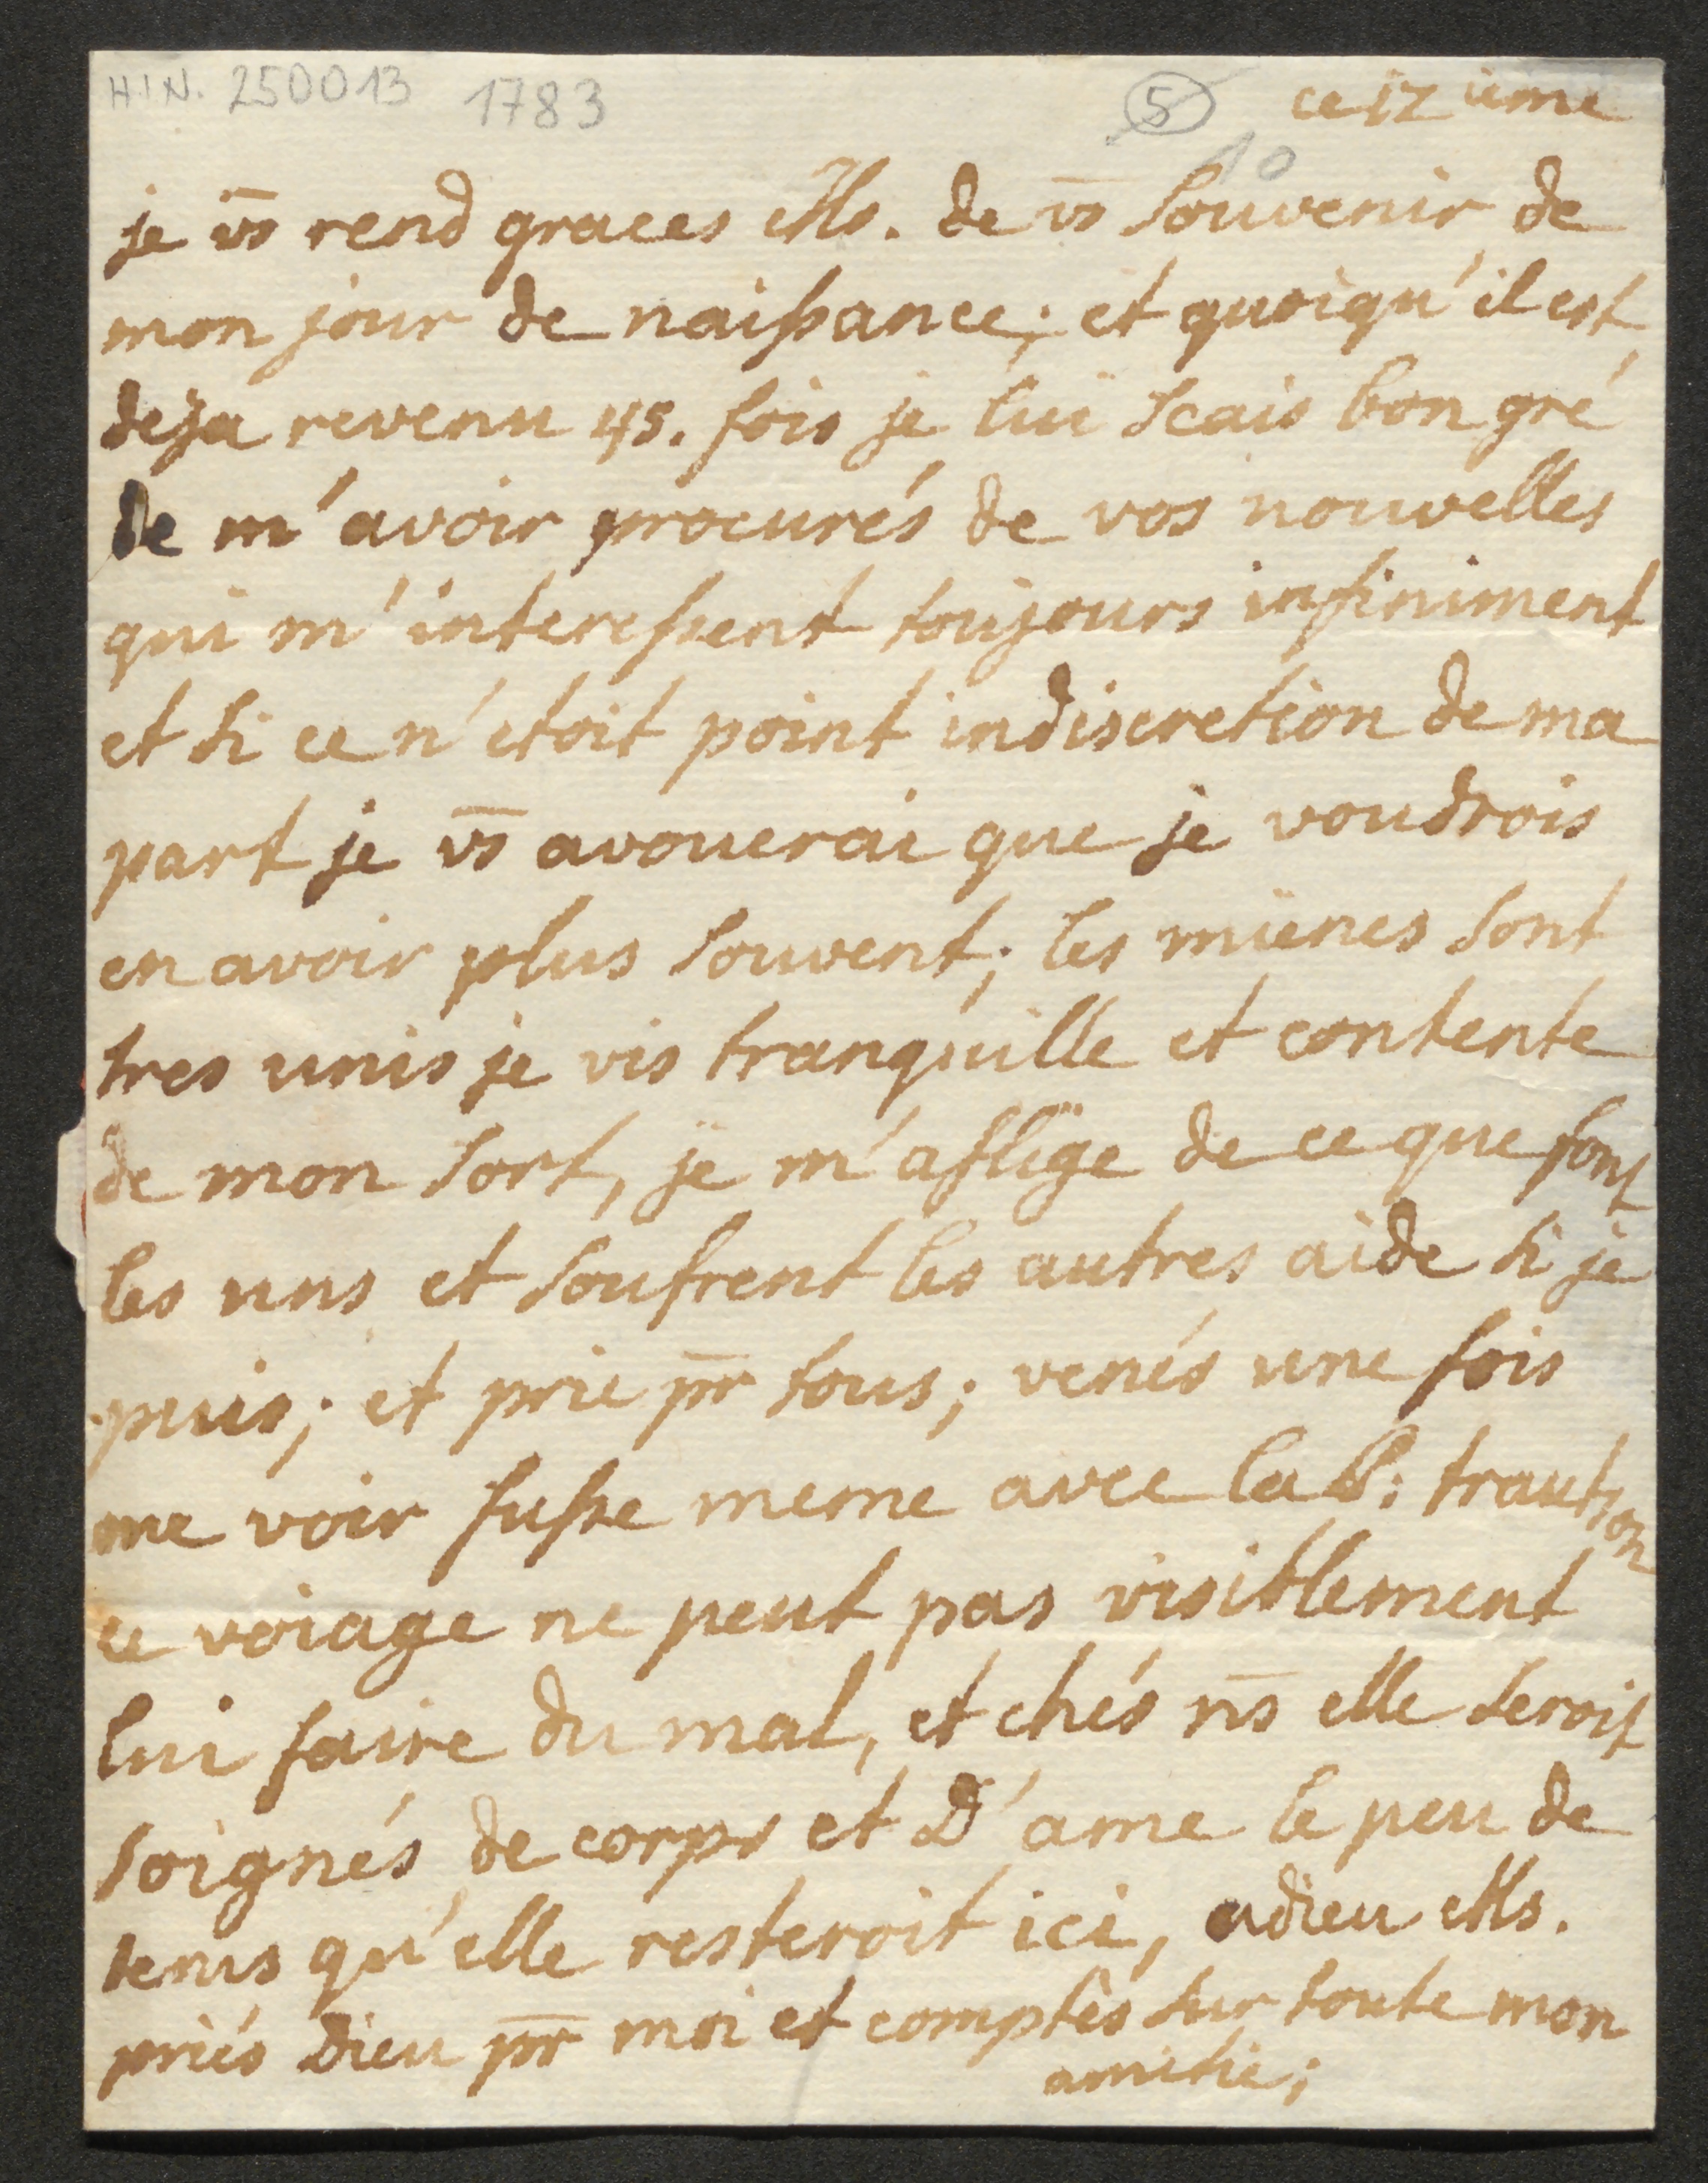 H.I.N. 250013 1783 5 ce 12 ieme
10
je vs̄ rend graces Ms. de vs̄ souvenir de
mon jour de naissance; et quoiqu'il est
deja revenu 45. fois je lui scais bon gré
de m'avoir procurés de vos nouvelles
qui m'interessent toujours infiniment
et si ce n'etoit point indiscretion de ma
part je vs̄ avouerai que je voudrois
en avoir plus souvent; les mienes sont
tres unis je vis tranquille et contente
de mon sort, je m'aflige de ce que font
les uns et soufrent les autres aide si je
puis; et prie pr̄ tous; venés une fois
me voir fusse meme avec la P: trautson
ce voiage ne peut pas visiblement
lui faire du mal, et chés ns̄ elle seroit
soignés de corps et d'ame le peu de
tems qu'elle resteroit ici, adieu Ms.
priés Dieu pr̄ moi et comptés sur toute mon
amitie;